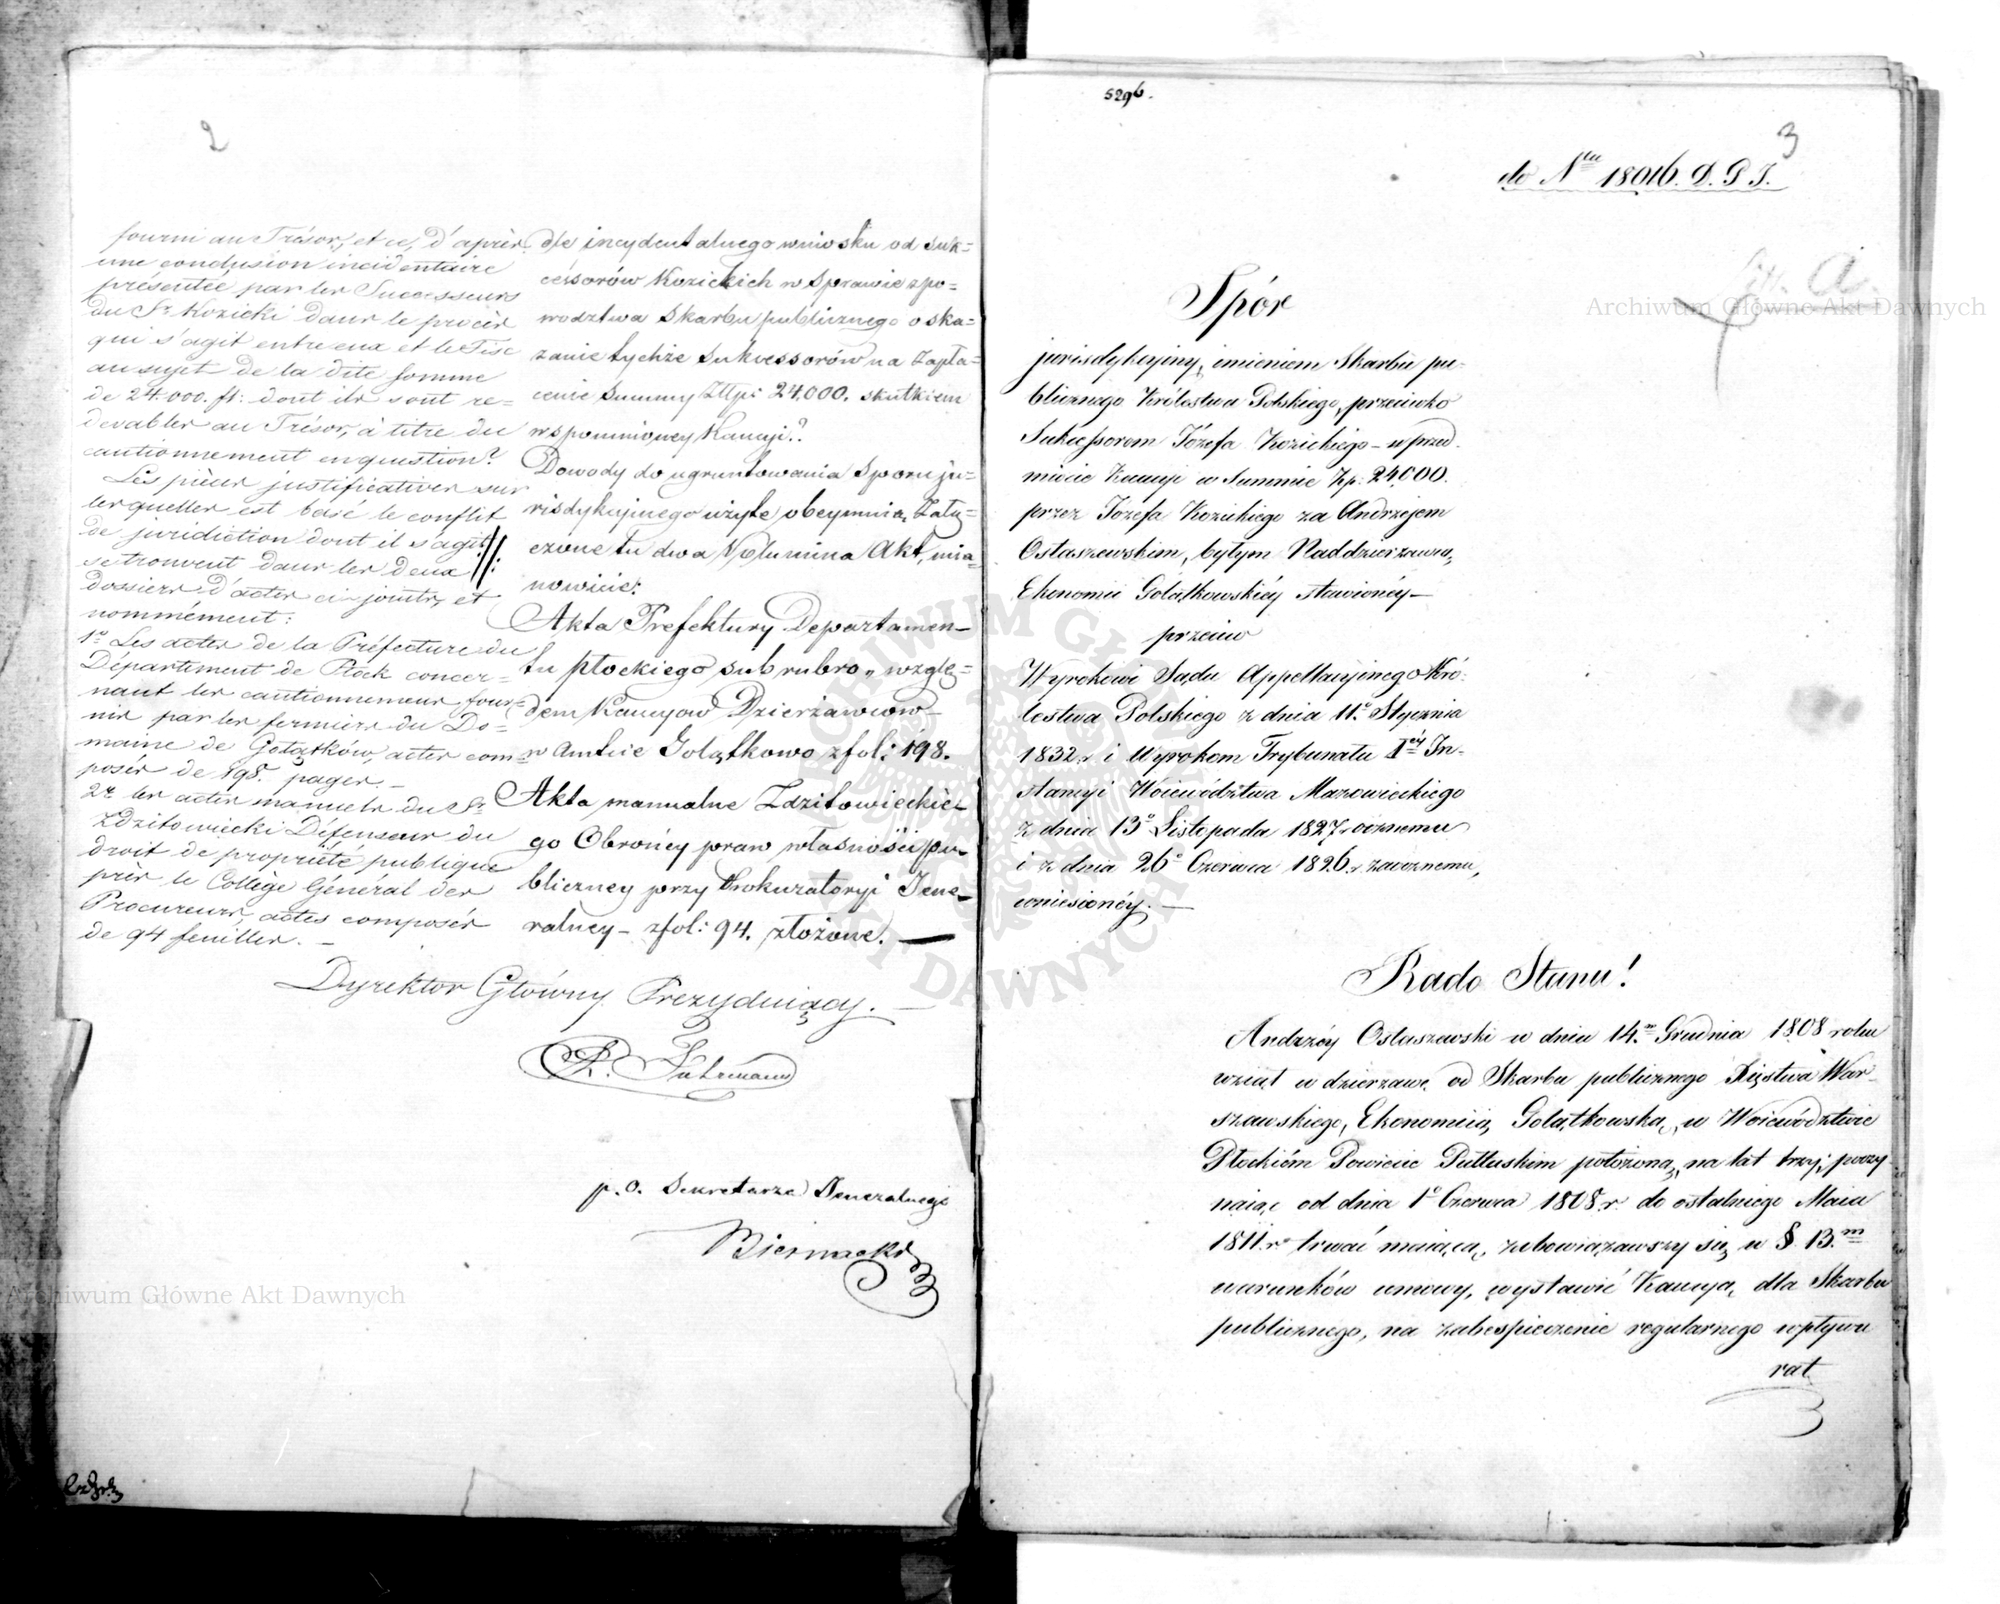 2
fourni au Trésor, et ce, d'après
une conclusion incidentaire
présentée par les Successeurs
du Sr. Kozicki dans le procès
qui s'agit entre eux et le Fisc
au sujet de la dite somme
de 24.000. fl: dont ils sont re=
devables au Trésor, à titre du
cautionnement en question?
Les pièces justificatives sur
lesquelles est basé le conflit
de juridiction dont il s'agit
se trouvent dans les deux
dossiers d'actes ci-joints, et
nommément:
1º Les actes de la Préfecture du
Département de Płock concer=
nant les cautionnemens four=
nis par les fermiers du Do=
maine de Gołątków, actes com=
posés de 198. pages. —
2º les actes manuels du Sr.
Zdzitowiecki Défenseur du
droit de propriété publique
près le Collège Général des
Procureurs, actes composés
de 94 feuilles. —
dle incydentalnego wniosku od suk=
cessorów Kozickich w Sprawie z po=
wodztwa Skarbu publicznego o ska=
zanie tychże Sukcessorów na zapła=
cenie Summy Złlp: 24,000. skutkiem
wspomnioney Kaucyi?
Dowody do ugruntowania Sporu ju=
risdykcyjnego użyte obeymuią załą=
czone tu dwa Volumina Akt, mia=
nowicie:
Akta Prefektury Departamen=
tu płockiego sub rubro „ wzglę=
dem Kaucyow Dzierżawców
w Amtcie Gołątkowo z fol: 198.
Akta manualne Zdzitowieckie=
go Obrońcy praw własności pu=
bliczney przy Prokuratoryi Jene=
ralney — z fol: 94. złożone. —
Dyrektor Główny Prezyduiący. —
R. Fuhrmann
p. o. Sekretarza Jeneralnego
Biernacki
5296.
3
do Nru 18016. D. P. J.
Lit. A.
Spór
jurisdykcyiny, imieniem Skarbu pu=
blicznego Królestwa Polskiego, przeciwko
Sukcessorom Józefa Kozickiego — w przed=
miocie Kaucyi w Summie Zp: 24,000.
przez Józefa Kozickiego za Andrzejem
Ostaszewskim, byłym Naddzierzawcą,
Ekonomii Gołątkowskiéy stawionéy —
przeciw
Wyrokowi Sądu Appellacyinego Kró=
lestwa Polskiego z dnia 11º Stycznia
1832. r. i Wyrokom Trybunału Iéy In=
stancyi Woiewództwa Mazowieckiego
z dnia 13º Listopada 1827. r. ocznemu
i z dnia 26º Czerwca 1826. r. zaocznemu,
wniesionéy. —
Rado Stanu!
Andrzéy Ostaszewski w dniu 14.m Grudnia 1808 roku
wziął w dzierzawę od Skarbu publicznego Xięstwa War=
szawskiego, Ekonomiią Gołątkowską, w Woiewództwie
Płockiém Powiecie Pułtuskim położoną, na lat trzy, poczy
naiąc od dnia 1º Czerwca 1808. r. do ostatniego Maia
1811. ro trwać maiącą, zobowiązawszy się w § 13.m
warunków umowy, wystawić Kaucyą, dla Skarbu
publicznego, na zabespieczenie regularnego wpływu
rat
Archiwum Główne Akt Dawnych
Archiwum Główne Akt Dawnych
ARCHIWUM GŁÓWNE AKT DAWNYCH